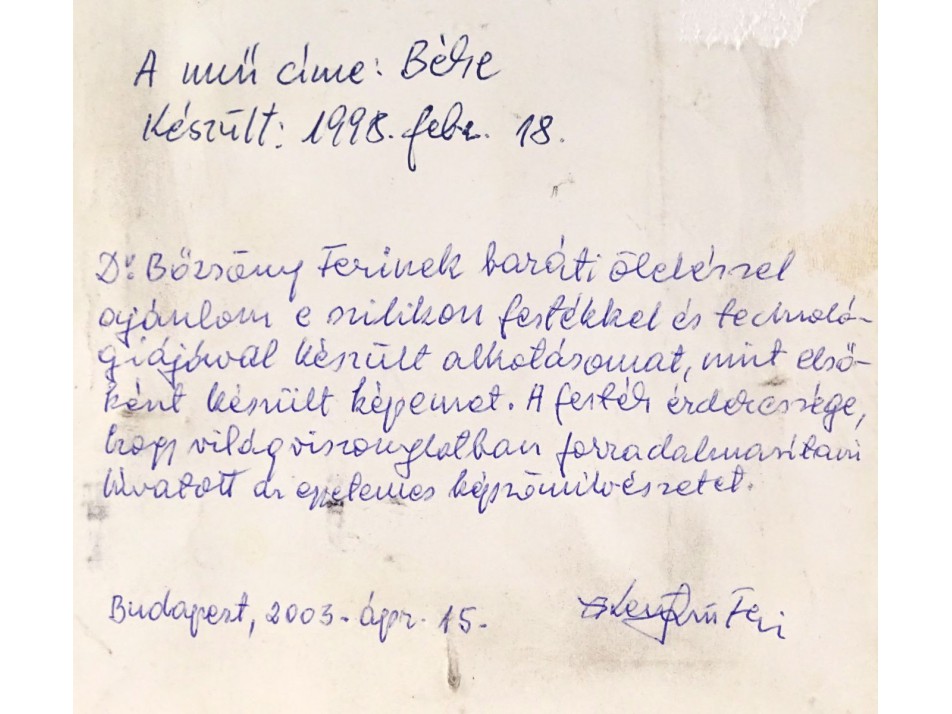 A mű címe: Béke
Készült: 1998. febr. 18.
Dr. Bőzsöny Ferinek baráti öleléssel
ajánlom e szilikon festékkel és technoló-
giájával készült alkotásomat, mint első-
ként készült képemet. A festék érdekessége,
hogy világviszonylatban forradalmasítani
hivatott az egyetemes képzőművészetet.
Budapest, 2003. ápr. 15.
Feri